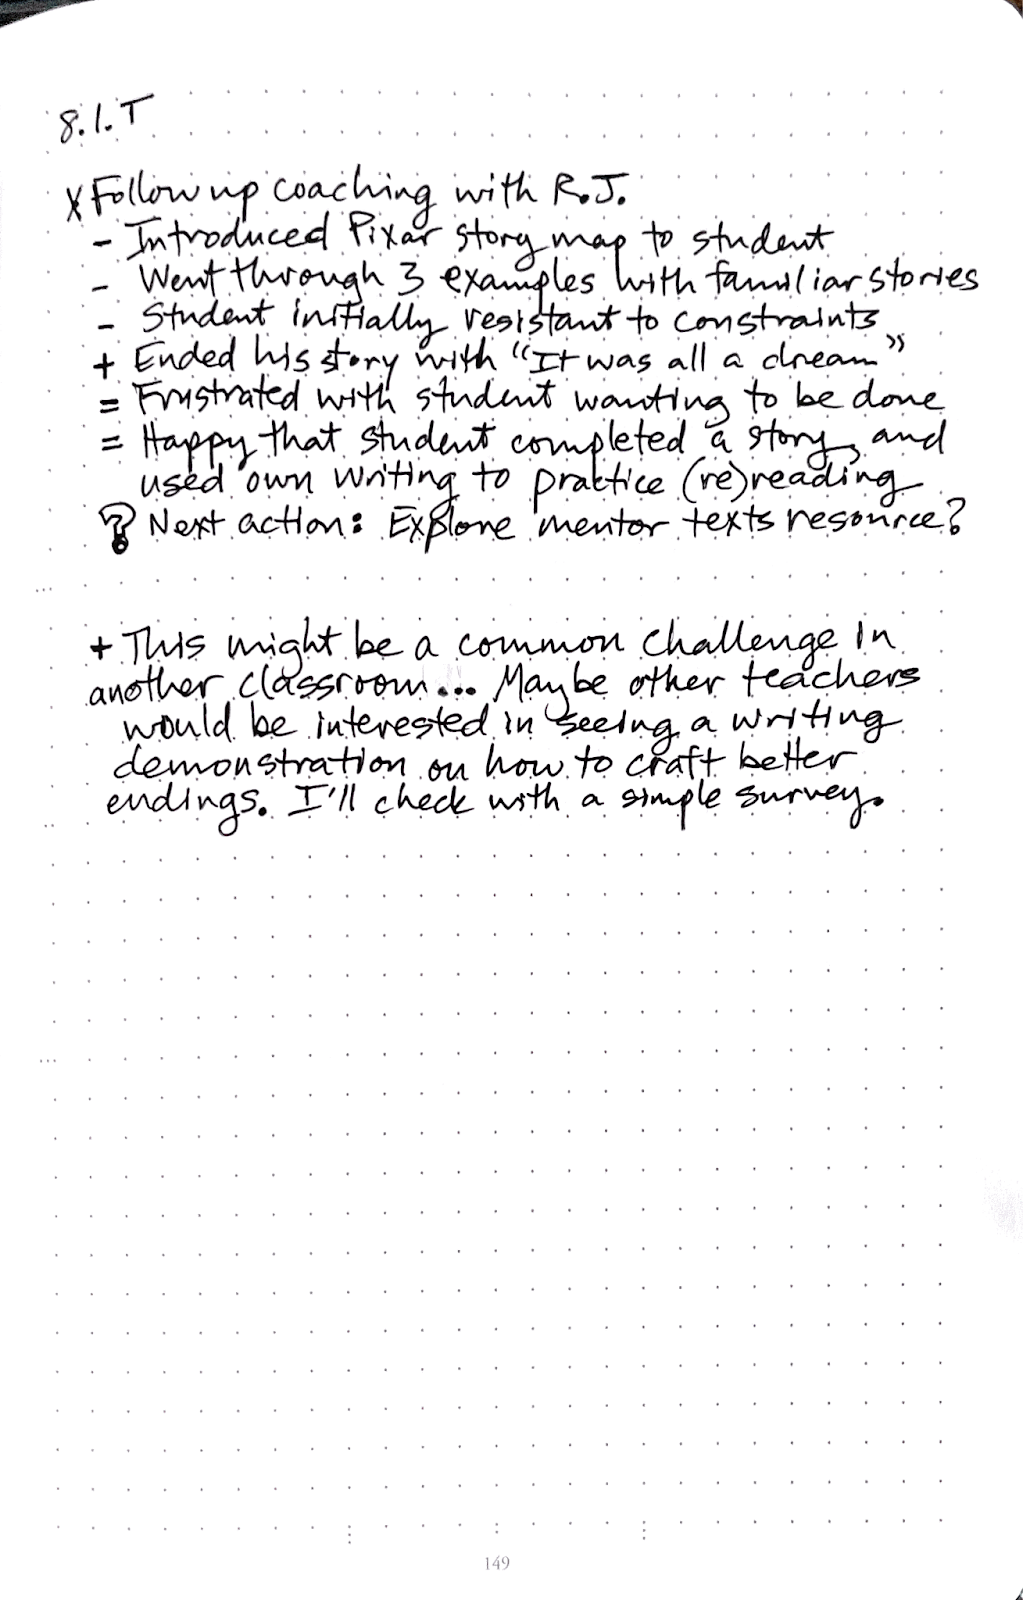 8.1.T
x Follow up coaching with R.J.
- Introduced Pixar story map to student
- Went through 3 examples with familiar stories
- Student initially resistant to constraints
+ Ended his story with "It was all a dream"
= Frustrated with student wanting to be done
= Happy that student completed a story, and
used own writing to practice (re)reading
? Next action: Explore mentor texts resource?
+ This might be a common challenge in
another classroom... Maybe other teachers
would be interested in seeing a writing
demonstration on how to craft better
endings. I'll check with a simple survey.
149